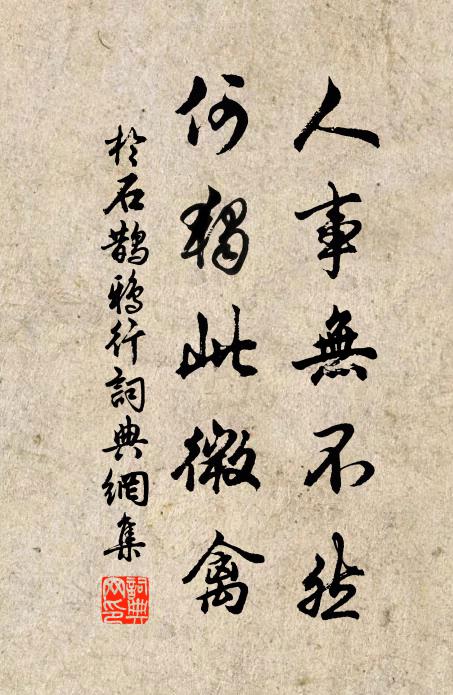 人事無不然
何獨此微禽
於石鵲鴉行詞典網集
詞典網印